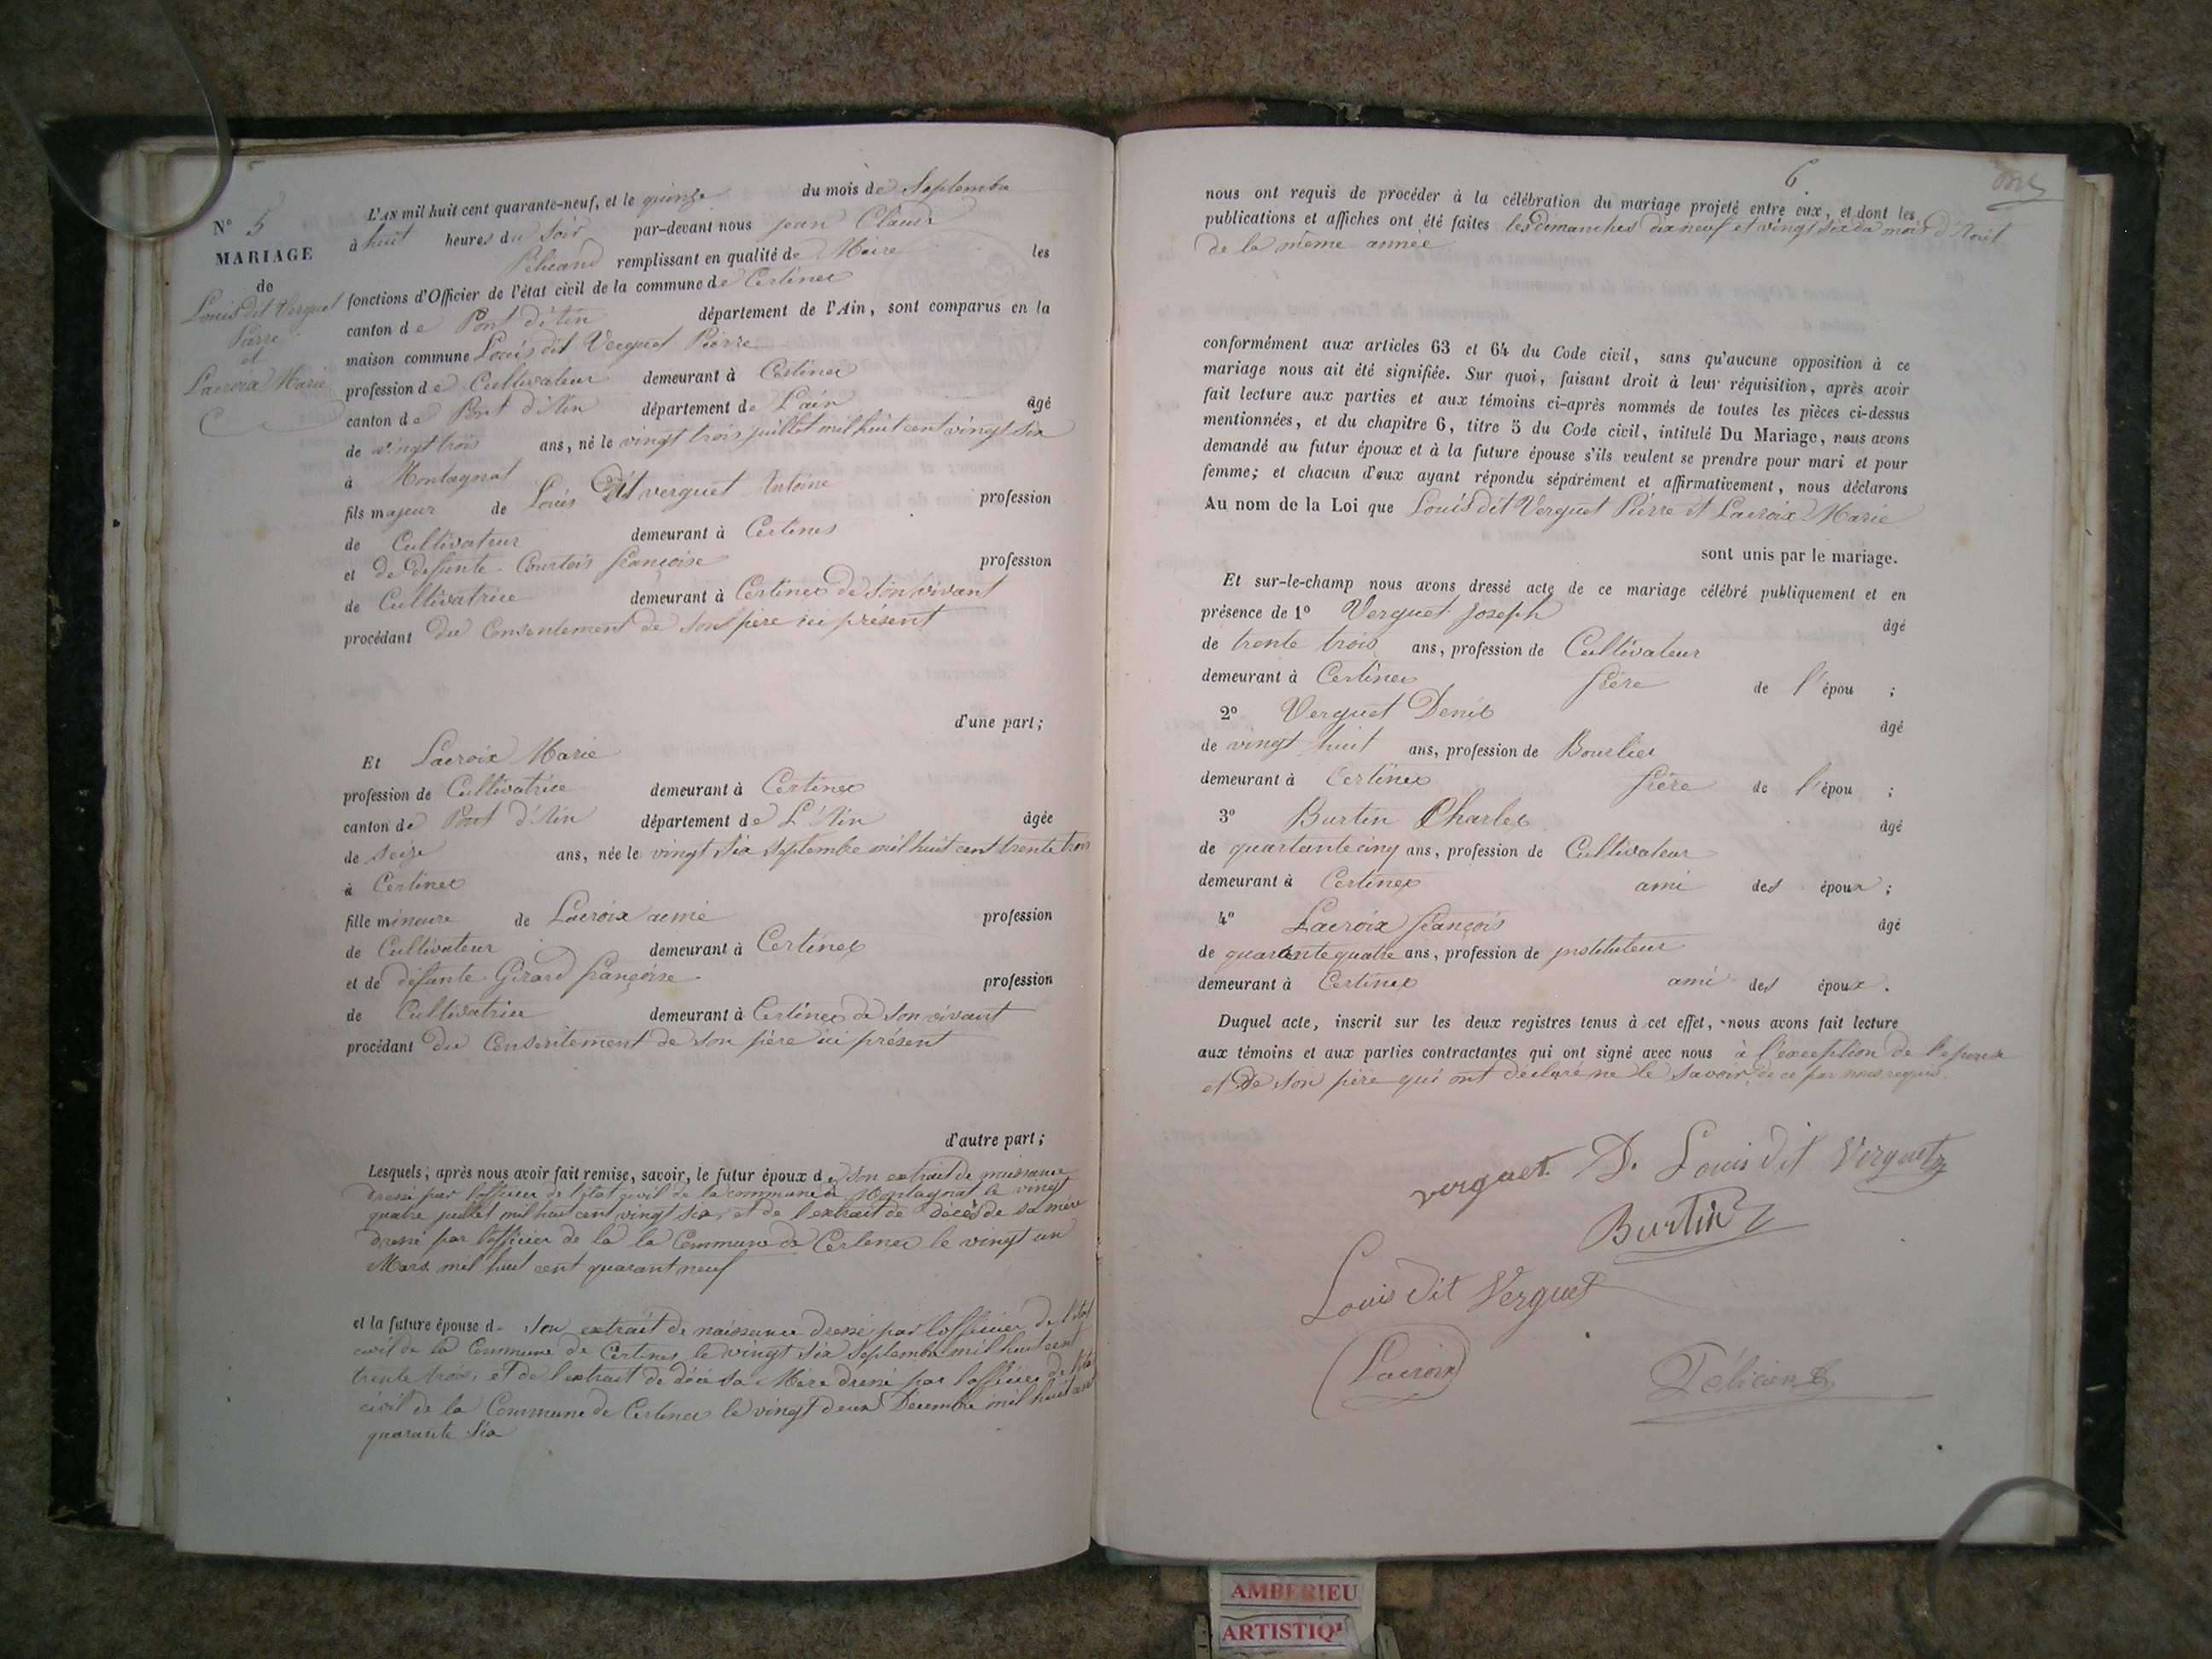 N° 5
MARIAGE
de
Louis dit Verguet
Pierre
et
Lacroix Marie
L'AN mil huit cent quarante-neuf, et le quinze du mois de Septembre
à huit heures du soir par-devant nous jean Claude
remplissant en qualité de Maire les
fonctions d'Officier de l'état civil de la commune de Certines
canton de Pont d'Ain département de l'Ain, sont comparus en la
maison commune Louis dit Verguet Pierre
profession de Cultivateur demeurant à Certines
canton de Pont d'Ain département de L'ain âgé
de vingt trois ans, né le vingt trois juillet mil huit cent vingt six
à Montagnat
fils majeur de Louis Dit verguet Antoine profession
de Cultivateur demeurant à Certines
et de defunte Courtois françoise profession
de Cultivatrice demeurant à Certines de son vivant
procédant du Consentement de son père ici présent
d'une part;
Et Lacroix Marie
profession de Cultivatrice demeurant à Certines
canton de Pont d'Ain département de L'Ain âgée
de seize ans, née le vingt six septembre mil huit cent trente trois
à Certines
fille mineure de Lacroix aimé profession
de Cultivateur demeurant à Certines
et de défunte Girard françoise profession
de Cultivatrice demeurant à Certines de son vivant
procédant du Consentement de son père ici présent
d'autre part;
Lesquels, après nous avoir fait remise, savoir, le futur époux de son extrait de naissance
dressé par l'officier de l'état civil de la commune de Montagnat le vingt
quatre juillet mil huit cent vingt six, et de l'extrait de décès de sa mère
dressé par l'officier de la la Commune de Certines le vingt un
Mars mil huit cent quarant neuf
et la future épouse d. son extrait de naissance dressé par l'officier de l'état
civil de la Commune de Certines le vingt six Septembre mil huit cent
trente trois, et de l'extrait de décè sa Mère dressé par l'officier de l'état
civil de la Commune de Certines le vingt deux Décembre mil huit cent
quarante six
6
nous ont requis de procéder à la célébration du mariage projeté entre eux, et dont les
publications et affiches ont été faites les dimanches dix neuf et vingt six du mois d'Aout
de la même année
conformément aux articles 63 et 64 du Code civil, sans qu'aucune opposition à ce
mariage nous ait été signifiée. Sur quoi, faisant droit à leur réquisition, après avoir
fait lecture aux parties et aux témoins ci-après nommés de toutes les pièces ci-dessus
mentionnées, et du chapitre 6, titre 5 du Code civil, intitulé Du Mariage, nous avons
demandé au futur époux et à la future épouse s'ils veulent se prendre pour mari et pour
femme; et chacun d'eux ayant répondu séparément et affirmativement, nous déclarons
Au nom de la Loi que Louis dit Verguet Pierre et Lacroix Marie
sont unis par le mariage.
Et sur-le-champ nous avons dressé acte de ce mariage célébré publiquement et en
présence de 1° Verguet Joseph âgé
de trente trois ans, profession de Cultivateur
demeurant à Certines frère de l'épou ;
2° Verguet Denis âgé
de vingt huit ans, profession de Bourlier
demeurant à Certines frère de l'épou ;
3° Burtin Charles âgé
de quartante cinq ans, profession de Cultivateur
demeurant à Certines ami des époux ;
4° Lacroix françois âgé
de quarante quatre ans, profession de jnstituteur
demeurant à Certines ami des époux .
Duquel acte, inscrit sur les deux registres tenus à cet effet, nous avons fait lecture
aux témoins et aux parties contractantes qui ont signé avec nous à l'exception de l'epouse
et De son père qui ont déclaré ne le savoir de ce par nous requis.
verguet D. Louis dit Verguet
Burtin
Louis Dit Verguet
Lacroix
AMBERIEU
ARTISTIQ